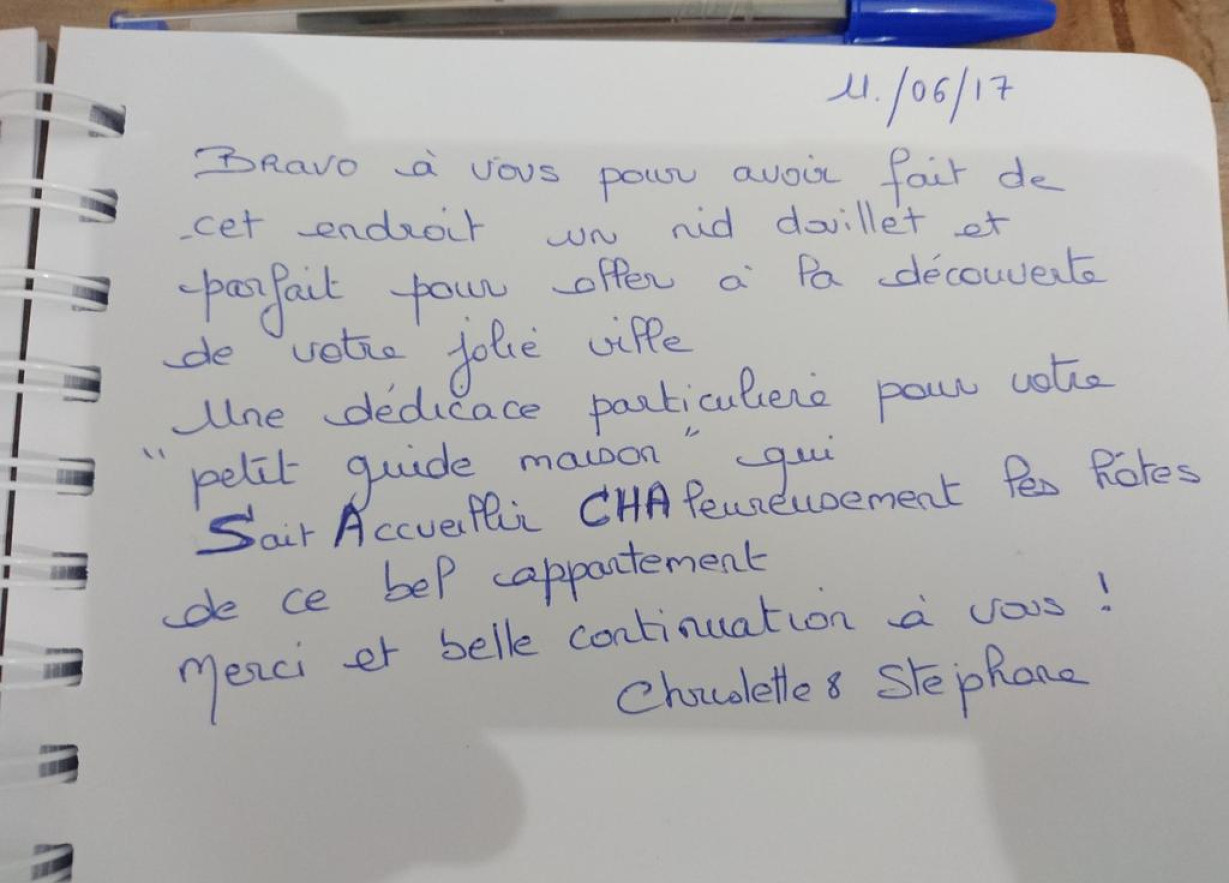 11./06/17
Bravo à vous pour avoir fait de
cet endroit un nid douillet et
parfait pour aller à la découverte
de votre jolie ville
Une dédicace particulière pour votre
"petit guide maison" qui
Sait Accueillir CHAleureusement les hôtes
de ce bel appartement
Merci et belle continuation à vous !
& Stéphane